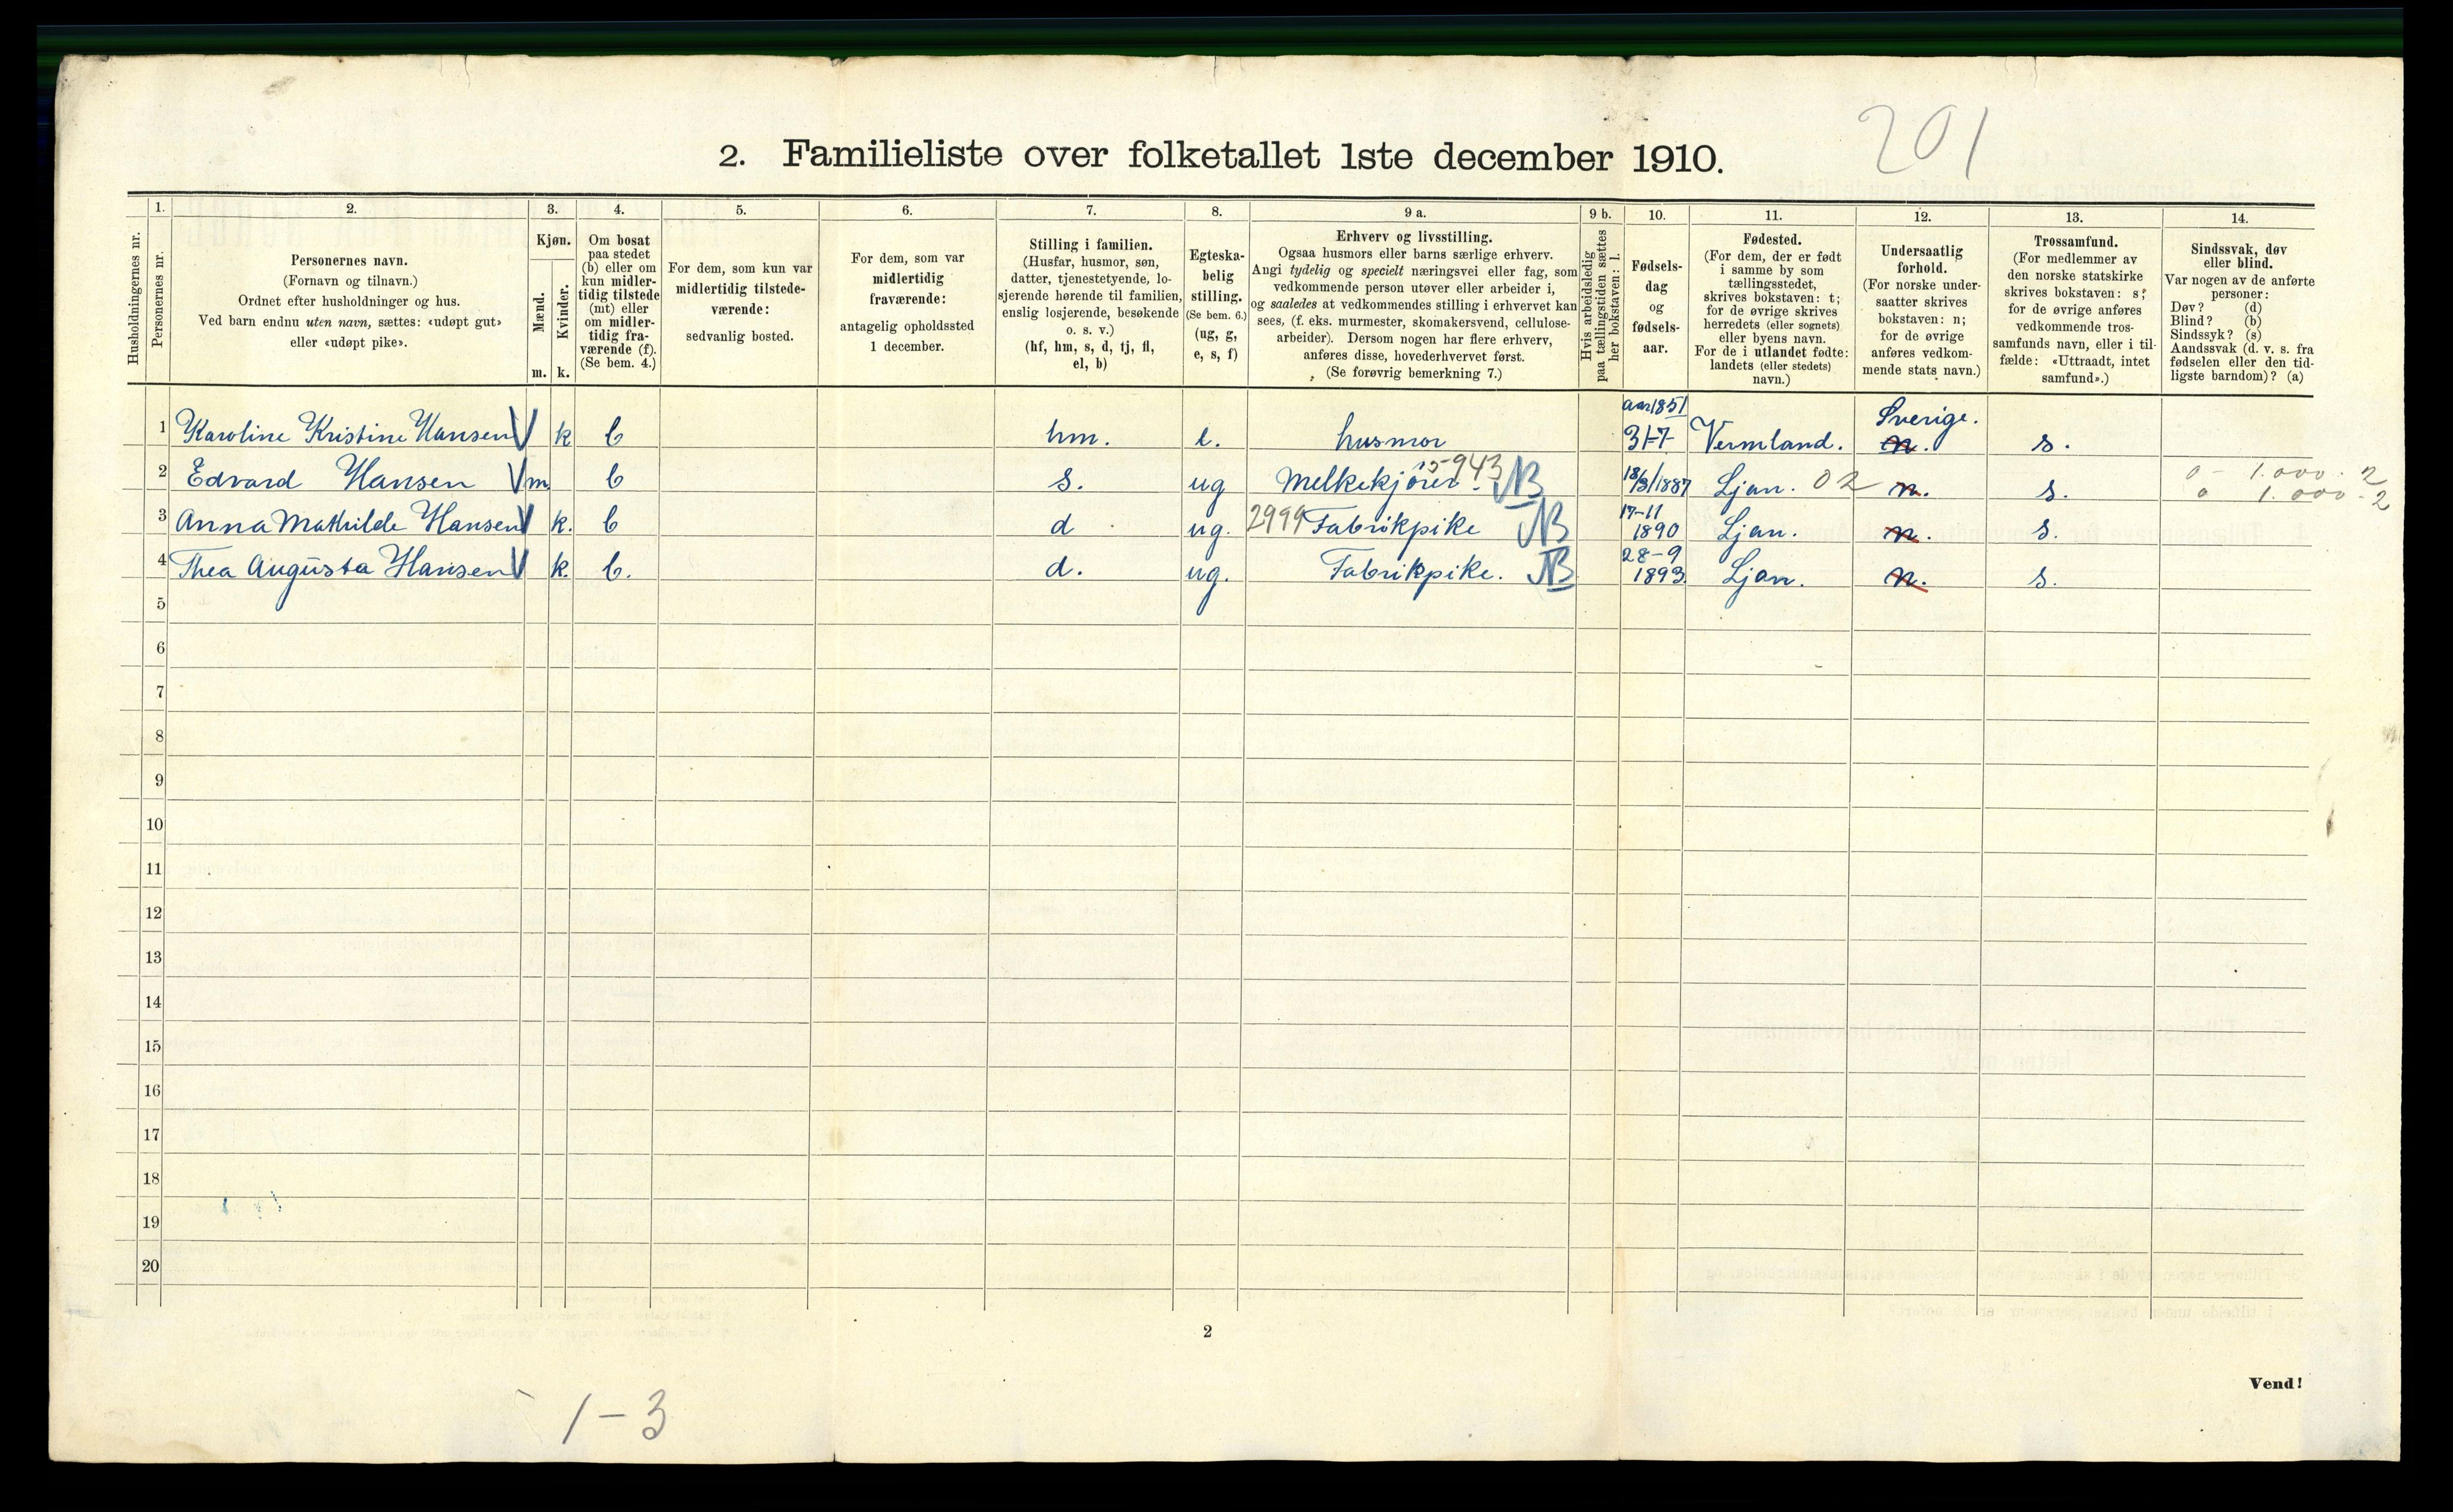 201
2. Familieliste over folketallet 1ste december 1910.
Husholdningernes nr.
1.
Personernes nr.
2.
Personernes navn.
(Fornavn og tilnavn.)
Ordnet efter husholdninger og hus.
Ved barn endnu uten navn, sættes: «udøpt gut»
eller «udøpt pike».
3.
Kjøn.
Mænd.
Kvinder.
m. k.
4.
Om bosat
paa stedet
(b) eller om
kun midler-
tidig tilstede
(mt) eller
om midler-
tidig fra-
værende (f).
(Se bem. 4.)
5.
For dem, som kun var
midlertidig tilstede-
værende:
sedvanlig bosted.
6.
For dem, som var
midlertidig
fraværende:
antagelig opholdssted
1 december.
7.
Stilling i familien.
(Husfar, husmor, søn,
datter, tjenestetyende, lo-
sjerende hørende til familien,
enslig losjerende, besøkende
o. s. v.)
(hf, hm, s, d, tj, fl,
el, b)
8.
Egteska-
belig
stilling.
(Se bem. 6.)
(ug, g,
e, s, f)
9 a.
Erhverv og livsstilling.
Ogsaa husmors eller barns særlige erhverv.
Angi tydelig og specielt næringsvei eller fag, som
vedkommende person utøver eller arbeider i,
og saaledes at vedkommendes stilling i erhvervet kan
sees, (f. eks. murmester, skomakersvend, cellulose-
arbeider). Dersom nogen har flere erhverv,
anføres disse, hovederhvervet først.
(Se forøvrig bemerkning 7.)
9 b.
Hvis arbeidsledig
paa tællingstiden sættes
her bokstaven: l.
10.
Fødsels-
dag
og
fødsels-
aar.
11.
Fødested.
(For dem, der er født
i samme by som
tællingsstedet,
skrives bokstaven: t;
for de øvrige skrives
herredets (eller sognets)
eller byens navn.
For de i utlandet fødte:
landets (eller stedets)
navn.)
12.
Undersaatlig
forhold.
(For norske under-
saatter skrives
bokstaven: n;
for de øvrige
anføres vedkom-
mende stats navn.)
13.
Trossamfund.
(For medlemmer av
den norske statskirke
skrives bokstaven: s;
for de øvrige anføres
vedkommende tros-
samfunds navn, eller i til-
fælde: «Uttraadt, intet
samfund».)
14.
Sindssvak, døv
eller blind.
Var nogen av de anførte
personer:
Døv? (d)
Blind? (b)
Sindssyk? (s)
Aandssvak (d. v. s. fra
fødselen eller den tid-
ligste barndom)? (a)
1 Karoline Kristine Hansen V k b hm. e. husmor aar 1851 31-7 Vermland. Sverige. n. s.
2 Edvard Hansen V m b s. ug Melkekjører. 15-943 NB 18/3/1887 Ljan. 02 n. s. 0 - 1.000. 2
0 1.000 - 2
3 Anna Mathilde Hansen V k. b d ug. 2999 Fabrikpike NB 17-11 1890 Ljan. n. s.
4 Thea Augusta Hansen V k. b. d. ug. Fabrikpike. NB 28-9 1893. Ljan. n. s.
5
6
7
8
9
10
11
12
13
14
15
16
17
18
19
20
2
Vend!
1-3